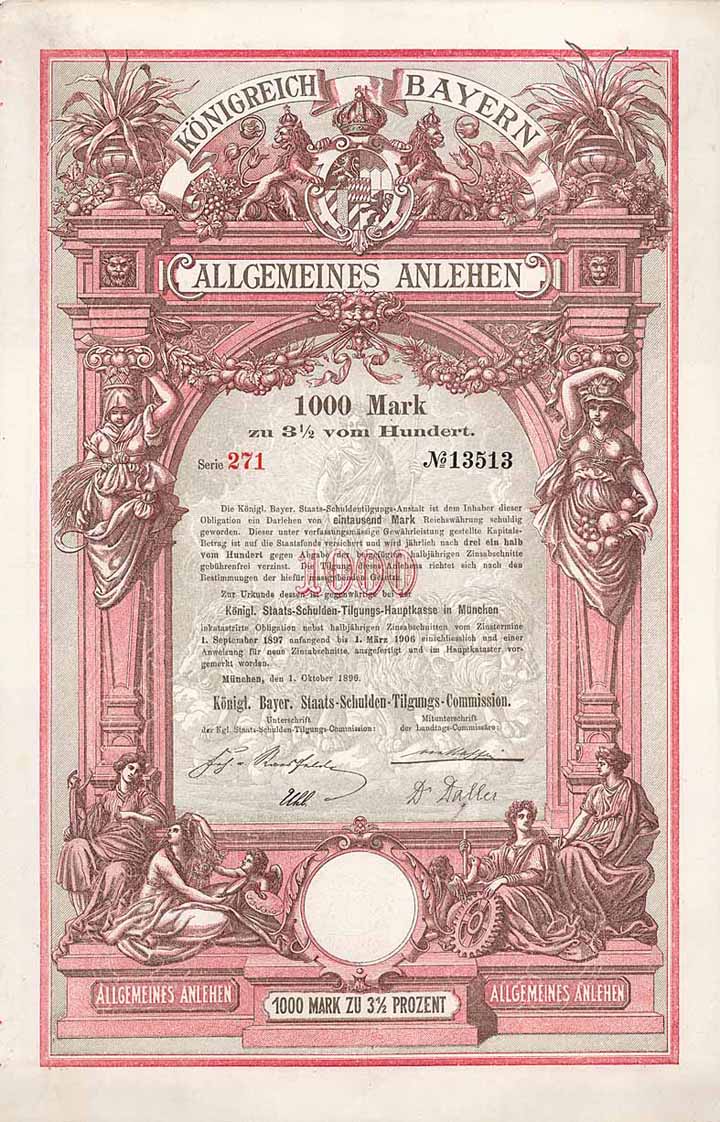 KÖNIGREICH BAYERN
ALLGEMEINES ANLEHEN
1000 Mark
zu 3½ vom Hundert.
Serie 271 № 13513
Die Königl. Bayer. Staats-Schuldentilgungs-Anstalt ist dem Inhaber dieser
Obligation ein Darlehen von eintausend Mark Reichswährung schuldig
geworden. Dieser unter verfassungsmässige Gewährleistung gestellte Kapitals-
Betrag ist auf die Staatsfonds versichert und wird jährlich nach drei ein halb
vom Hundert gegen Abgabe der beigefügten halbjährigen Zinsabschnitte
gebührenfrei verzinst. Die Tilgung dieses Anlehens richtet sich nach den
Bestimmungen der hiefür massgebenden Gesetze.
1000
Zur Urkunde dessen ist gegenwärtige bei der
Königl. Staats-Schulden-Tilgungs-Hauptkasse in München
inkatastrirte Obligation nebst halbjährigen Zinsabschnitten vom Zinstermine
1. September 1897 anfangend bis 1. März 1906 einschliesslich und einer
Anweisung für neue Zinsabschnitte, ausgefertigt und im Hauptkataster vor-
gemerkt worden.
München, den 1. Oktober 1896.
Königl. Bayer. Staats-Schulden-Tilgungs-Commission.
Unterschrift Mitunterschrift
der Kgl. Staats-Schulden-Tilgungs-Commission: der Landtags-Commissäre:
Uhl. Dr Daller
ALLGEMEINES ANLEHEN 1000 MARK ZU 3½ PROZENT ALLGEMEINES ANLEHEN